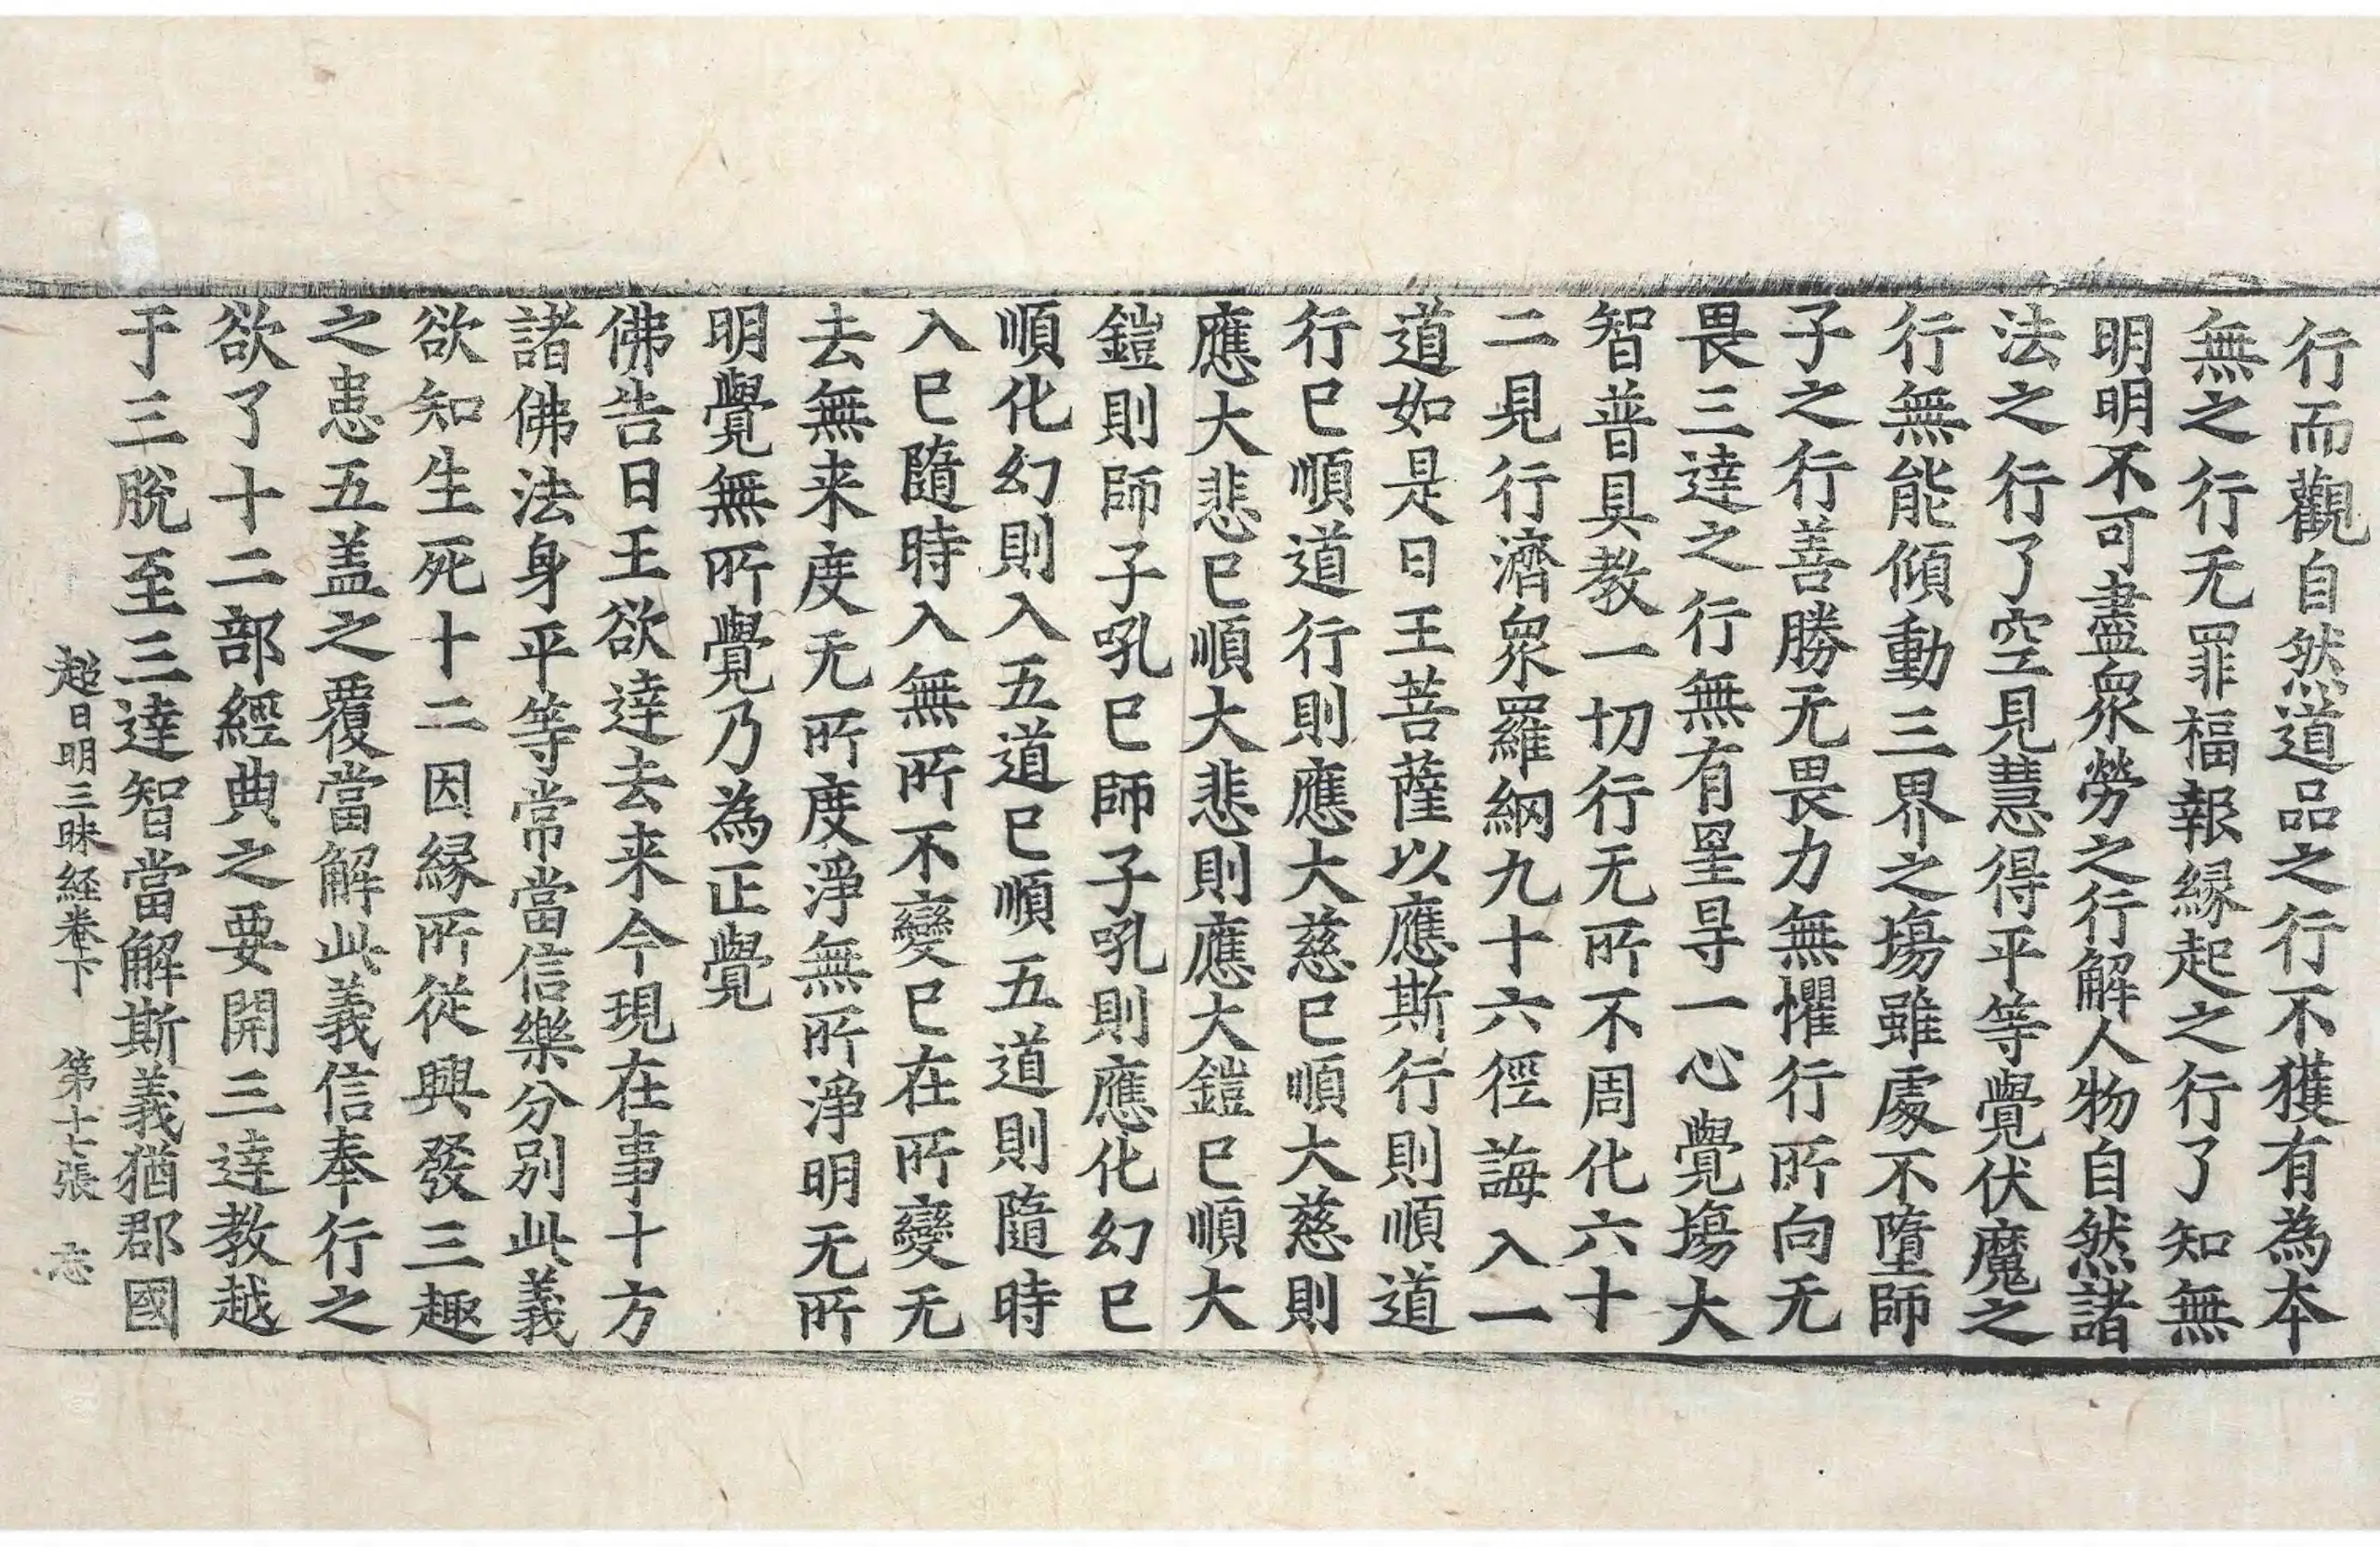 行而觀自然道品之行不獲有為本
無之行无罪福報縁起之行了知無
明明不可盡衆勞之行解人物自然諸
法之行了空見慧得平等覺伏魔之
行無能傾動三界之場雖處不墮師
子之行善勝无畏力無懼行所向无
畏三達之行無有罣㝵一心覺場大
智普具教一切行无所不周化六十
二見行濟衆羅網九十六徑誨入一
道如是日王菩薩以應斯行則順道
行已順道行則應大慈已順大慈則
應大悲已順大悲則應大鎧已順大
鎧則師子吼已師子吼則應化幻已
順化幻則入五道已順五道則隨時
入已隨時入無所不變已在所變无
去無来度无所度淨無所淨明无所
明覺無所覺乃為正覺
佛告日王欲達去来今現在事十方
諸佛法身平等常當信樂分別此義
欲知生死十二因縁所從興發三趣
之患五盖之覆當解此義信奉行之
欲了十二部經典之要開三達教越
于三脫至三達智當解斯義猶郡國
超日明三昧経卷下　第十七張　忘